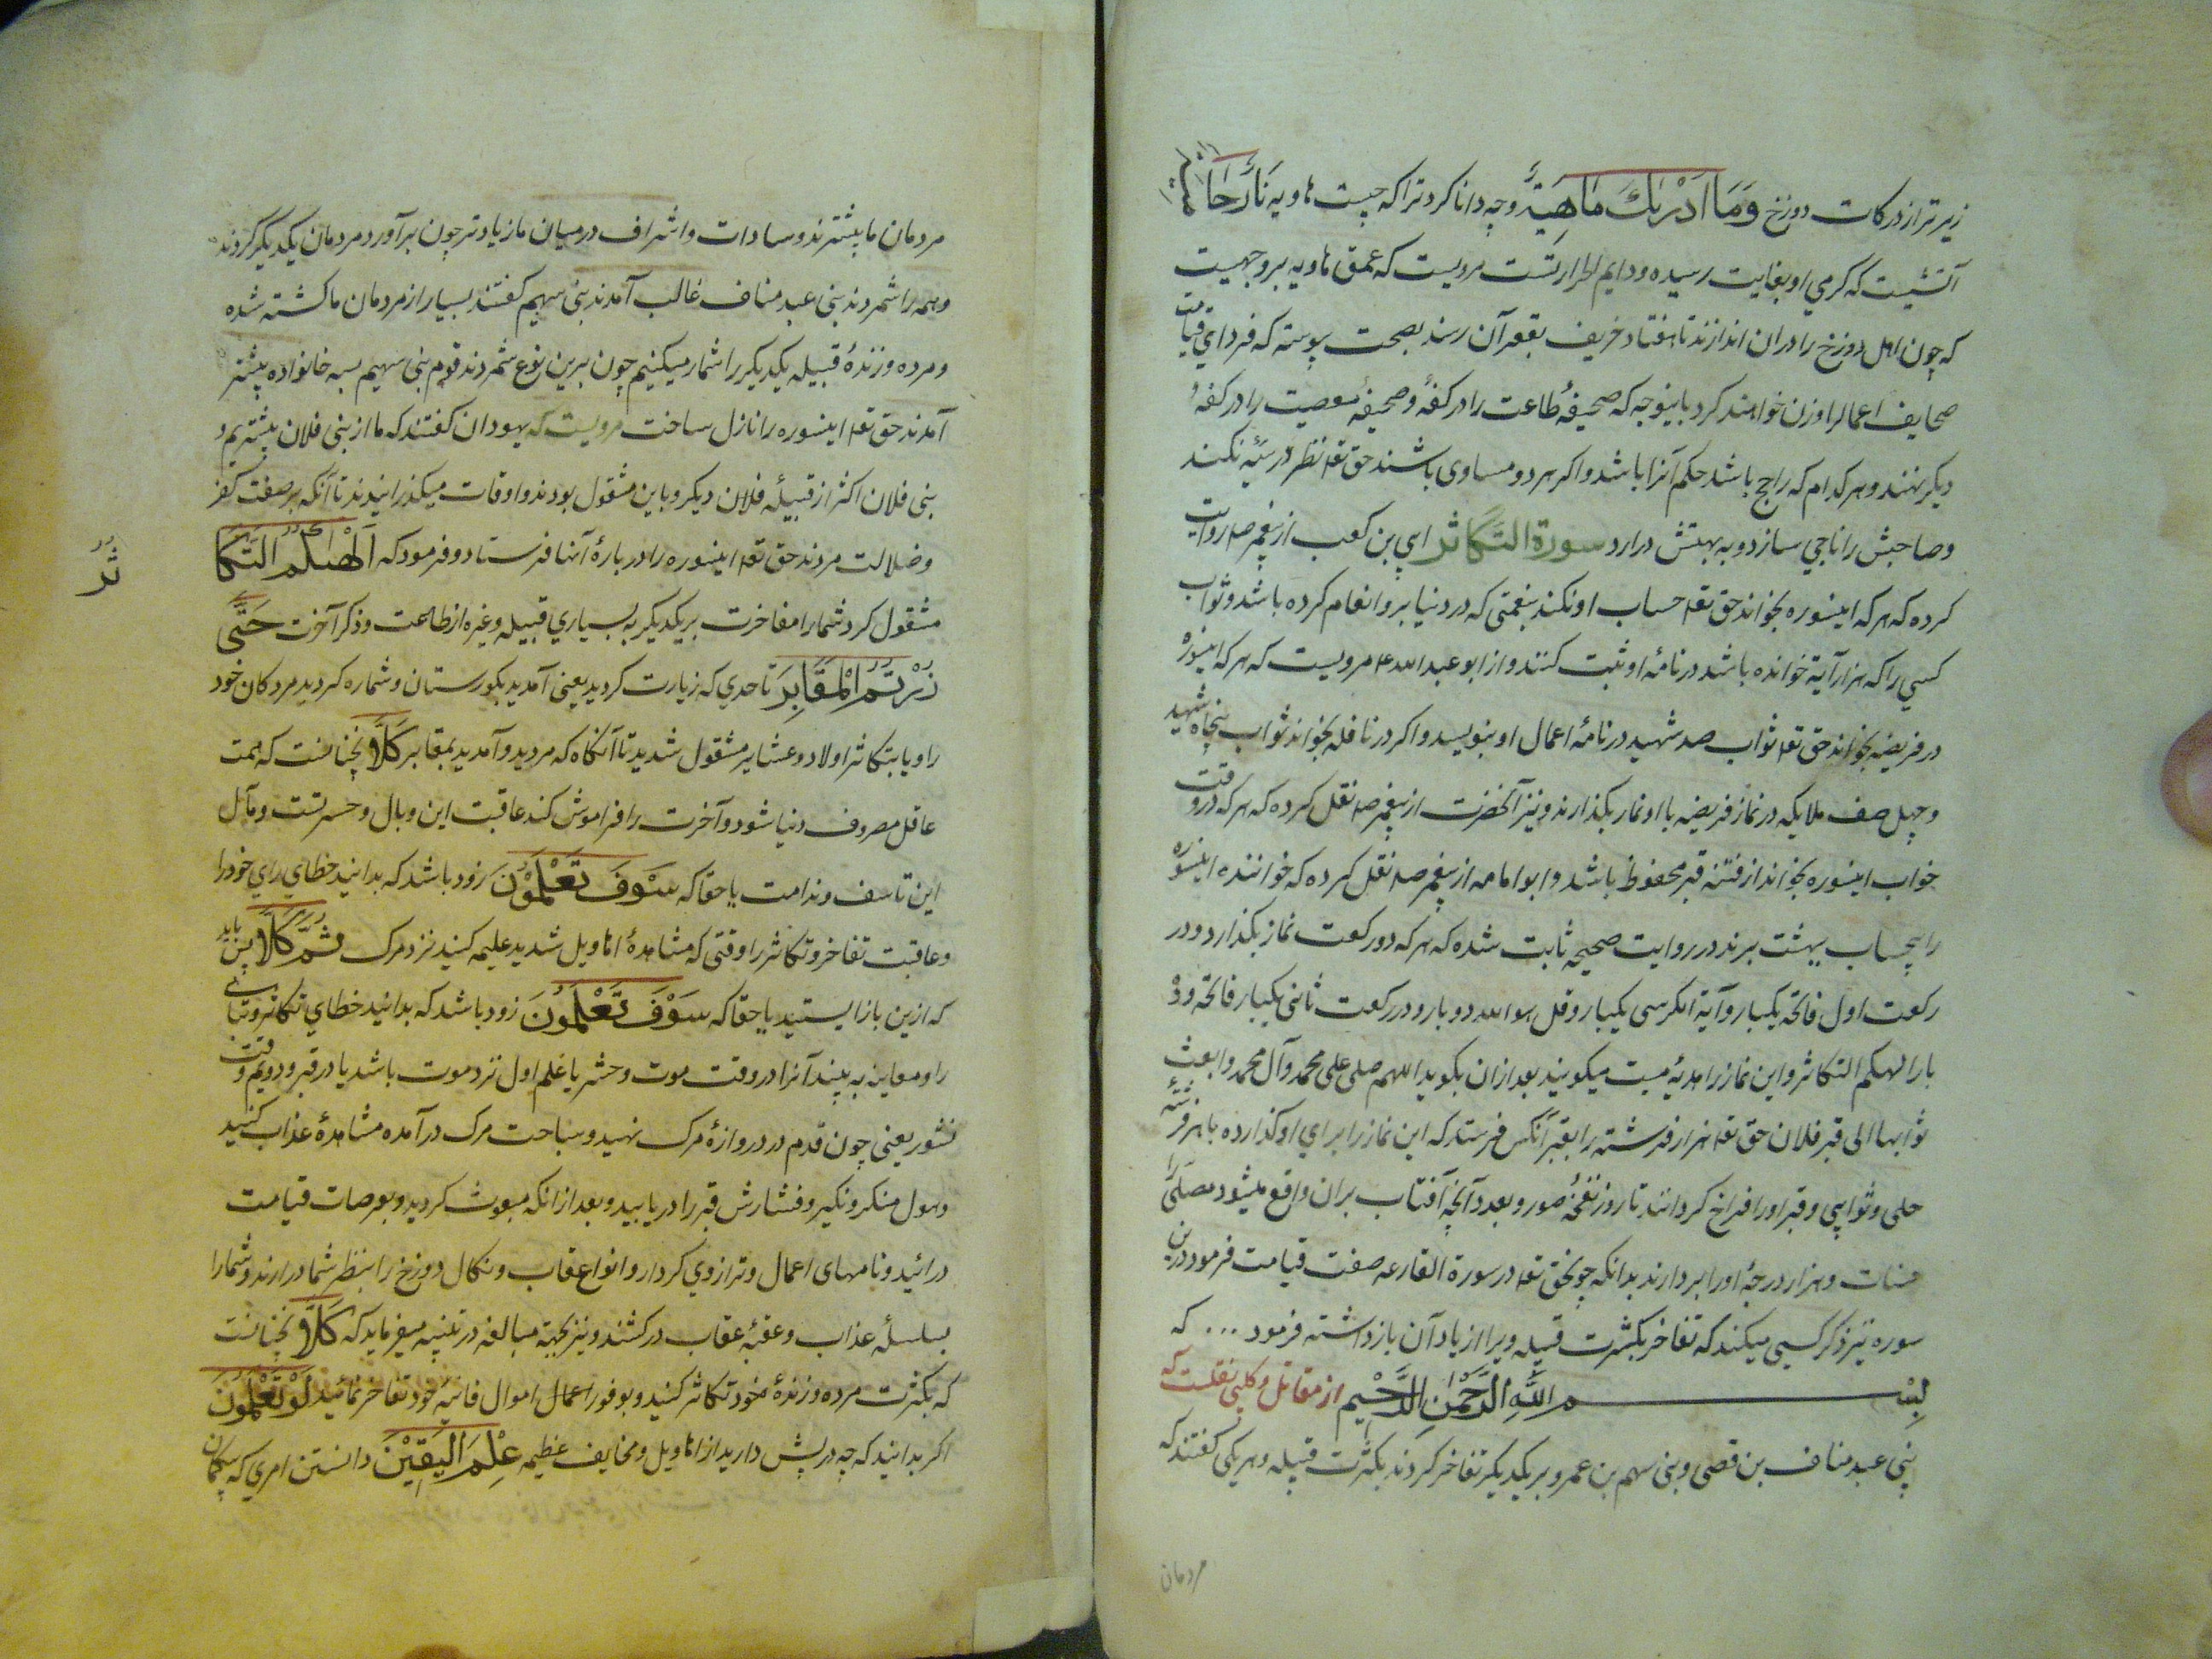 زیرتر از درکات دوزخ وَمَا اَدْرٰیكَ مَاهِیَهْ وچه دانا کرد ترا که چیست هاویه نَارٌ حَامِ
آتشیست که کرمي او بغایت رسیده و دایم مرویست که عمق هاویه بروجهیست
که چون اهل دوزخ را دران اندازند تا هفتاد خریف بقعر آن رسند بصحت پیوسته که فردای قیامت
صحایف اعمالرا وزن خواهند کرد باینوجه که صحیفهٔ طاعت را در کفهٔ و صحیفهٔ معصیت را در کفهٔ
دیکر نهند و هر کدام که راجح باشد حکم آنرا باشد و اکر هر دو مساوی باشند حق تعه نظر در سیئه نکند
و صاحبش را ناجي سازد و به بهشتش درارد سورة التکاثر ابي بن کعب از پیغمبر صه روایت
کرده که هر که اینسوره بخواند حق تعه حساب او نکند بنعمتی که در دنیا بر او انعام کرده باشد و ثواب
کسي را که هزار آیة خوانده باشد در نامهٔ او ثبت کنند و از ابو عبد الله ع مرویست که هر که اینسوره
در فریضه بخواند حق تعه ثواب صد شهید در نامهٔ اعمال او بنویسد و اکر در نافله بخواند ثواب پنجاه شهید
و چهل صف ملایکه در نماز فریضه با او نماز بکذارند و نیز آنحضرت از پیغمبر صه نقل کرده که هر که در وقت
خواب اینسوره بخواند از فتنه قبر محفوظ باشد و ابو امامه از پیغمبر صه نقل کرده که خواننده اینسوره
را بیحساب بهشت برند در روایت صحیحه ثابت شده که هر که دو رکعت نماز بکذارد و در
رکعت اول فاتحه یکبار و آیة الکرسی یکبار و قل هو الله دو بار و در رکعت ثانی یکبار فاتحه و ده
بار الهیکم التکاثر و این نماز را هدیهٔ میت میکویند بعد ازان بکوید اللهم صلی علی محمد و آل محمد و ابعث
ثوابها الی قبر فلان حق تعه هزار فرشته را بقبر آنکس فرستد که این نماز را برای او کذارده با هر فرشته
حلی و ثوابی و قبر او را فراخ کردانند تا روز نفخهٔ صور و بعدد آنچه آفتاب بران واقع میشود مصلی را
حسنات و هزار درجهٔ او را بردارند بدانکه چون حق تعه در سورة القارعه صفت قیامت فرمود درین
سوره نیز ذکر کسی میکند که تفاخر بکثرت قبیله ویرا از یاد آن بازداشته فرمود ... که
بِسْمِ اللهِ الرَّحْمٰنِ الرَّحِیْمِ از مقاتل و کلبی نقلست که
بنی عبد مناف بن قصی و بنی سهم بن عمرو بر یکدیکر تفاخر کردند بکثرت قبیله و هر یکی کفتند که
مردمان
مردمان ما بیشترند و سادات و اشراف در میان ما زیادتر چون برآورد مردمان یکدیکر کردند
و همه را شمردند بنی عبد مناف غالب آمدند بنی سهیم کفتند بسیار از مردمان ما کشته شده
و مرده و زندهٔ قبیله یکدیکر را شمار میکنیم چون برین نوع شمردند قوم بنی سهیم بسه خانواده بیشتر
آمدند حق تعه اینسوره را نازل ساخت مرویست که یهودان کفتند که ما از بنی فلان بیشتریم و
بنی فلان اکثر از قبیلهٔ فلان دیکر و باین مشغول بودند و اوقات میکذرانیدند تا آنکه بر صفت کفر
و ضلالت مردند حق تعه اینسوره را در بارهٔ آنها فرستاد و فرمود که اَلْهٰیکُمُ التَّکَا
ثُرُ
مشغول کرد شما را مفاخرت بر یکدیکر به بسیاري قبیله و غیره از طاعت و ذکر آخرت حَتّٰی
زُرْتُمُ الْمَقَابِرَ تا حدي که زیارت کردید یعنی آمدید بکورستان و شماره کردید مردکان خود
را و یا بتکاثر اولاد و عشایر مشغول شدید تا آنکاه که مردید و آمدید بمقابر کَلَّا نچنانست که همت
عاقل مصروف دنیا شود و آخرت را فراموش کند عاقبت این وبال و حسرتست و مآل
این تاسف و ندامت یا حقا که سَوْفَ تَعْلَمُوْنَ زود باشد که بدانید خطای رای خود را
و عاقبت تفاخر و تکاثر را وقتی که مشاهدهٔ اهاویل شدید علیمه کنید نزد مرک ثُمَّ کَلَّا پس باید
که ازین باز ایستید یا حقا که سَوْفَ تَعْلَمُوْنَ زود باشد که بدانید خطاي تکاثر و تباهی
را و معاینه به بیند آنرا در وقت موت و حشر یا علم اول نزد موت باشد یا در قبر و دویم وقت
نشور یعنی چون قدم در دروازهٔ مرک نهید و سباحت مرک درآمده مشاهدهٔ عذاب کنید
و هول منکر و نکیر و فشارش قبر را دریابید و بعد ازانکه مبعوث کردید و بعرصات قیامت
درائید و نامهای اعمال و ترازوي کردار و انواع عقاب و نکال دوزخ را بنظر شما درارند و شما را
بسلسلهٔ عذاب و عقبهٔ عقاب درکشند و نیز بجهة مبالغه در تنبیه میفرماید که کَلَّا نچنانست
که بکثرت مرده و زندهٔ خود تکاثر کنید و بوفور اعمال اموال فانیهٔ خود تفاخر نمائید لَوْ تَعْلَمُوْنَ
اکر بدانید که چه در پیش دارید از اهاویل و مخایف عظیمه عِلْمَ الْیَقِیْنَ دانستن امري که بیکمان